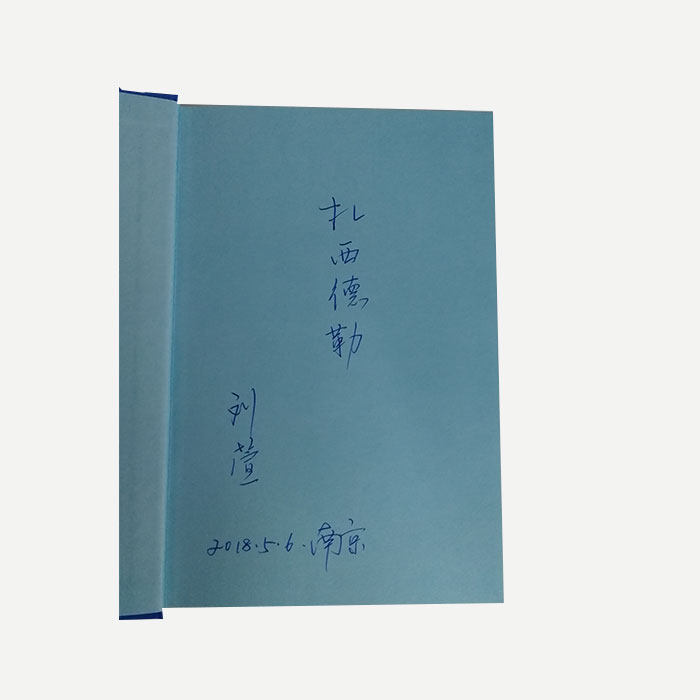 扎西德勒
刘萱
2018.5.6.南京